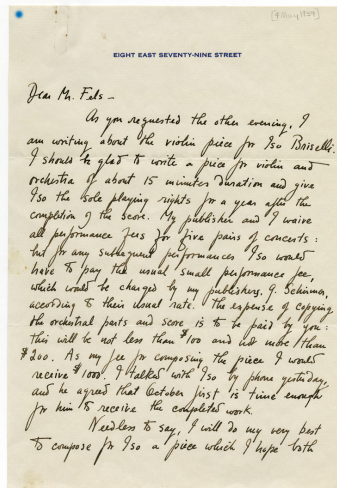 [4 May 1939]
EIGHT EAST SEVENTY-NINE STREET
Dear Mr. Fels –
As you requested the other evening, I
am writing about the violin piece for Iso Briselli.
I should be glad to write a piece for violin and
orchestra of about 15 minutes duration and give
Iso the sole playing rights for a year after the
completion of the score. My publisher and I waive
all performance fees for five pairs of concerts:
but for any subsequent performances Iso would
have to pay the usual small performance fee,
which would be charged by my publishers, G. Schirmer,
according to their usual rate. The expense of copying
the orchestral parts and score is to be paid by you:
this will be not less than $100 and not more than
$200. As my fee for composing the piece I would
receive $1000. I talked with Iso by phone yesterday,
and he agreed that October first is time enough
for him to receive the completed work.
Needless to say, I will do my very best
to compose for Iso a piece which I hope both